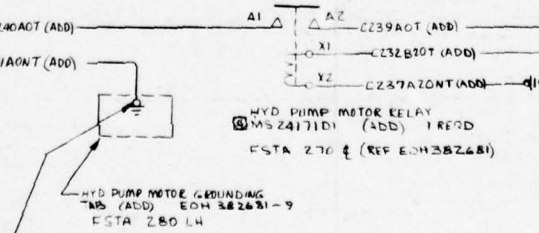 240A0T (ADD)
A1
A2
C239A0T (ADD)
X1
C232B20T (ADD)
1A0NT (ADD)
X2
C237A20NT (ADD)
HYD PUMP MOTOR RELAY
MS24171D1 (ADD) 1 REQD
FSTA 270 ℄ (REF EOH382681)
HYD PUMP MOTOR GROUNDING
TAB (ADD) EOH 382681-9
FSTA 280 LH